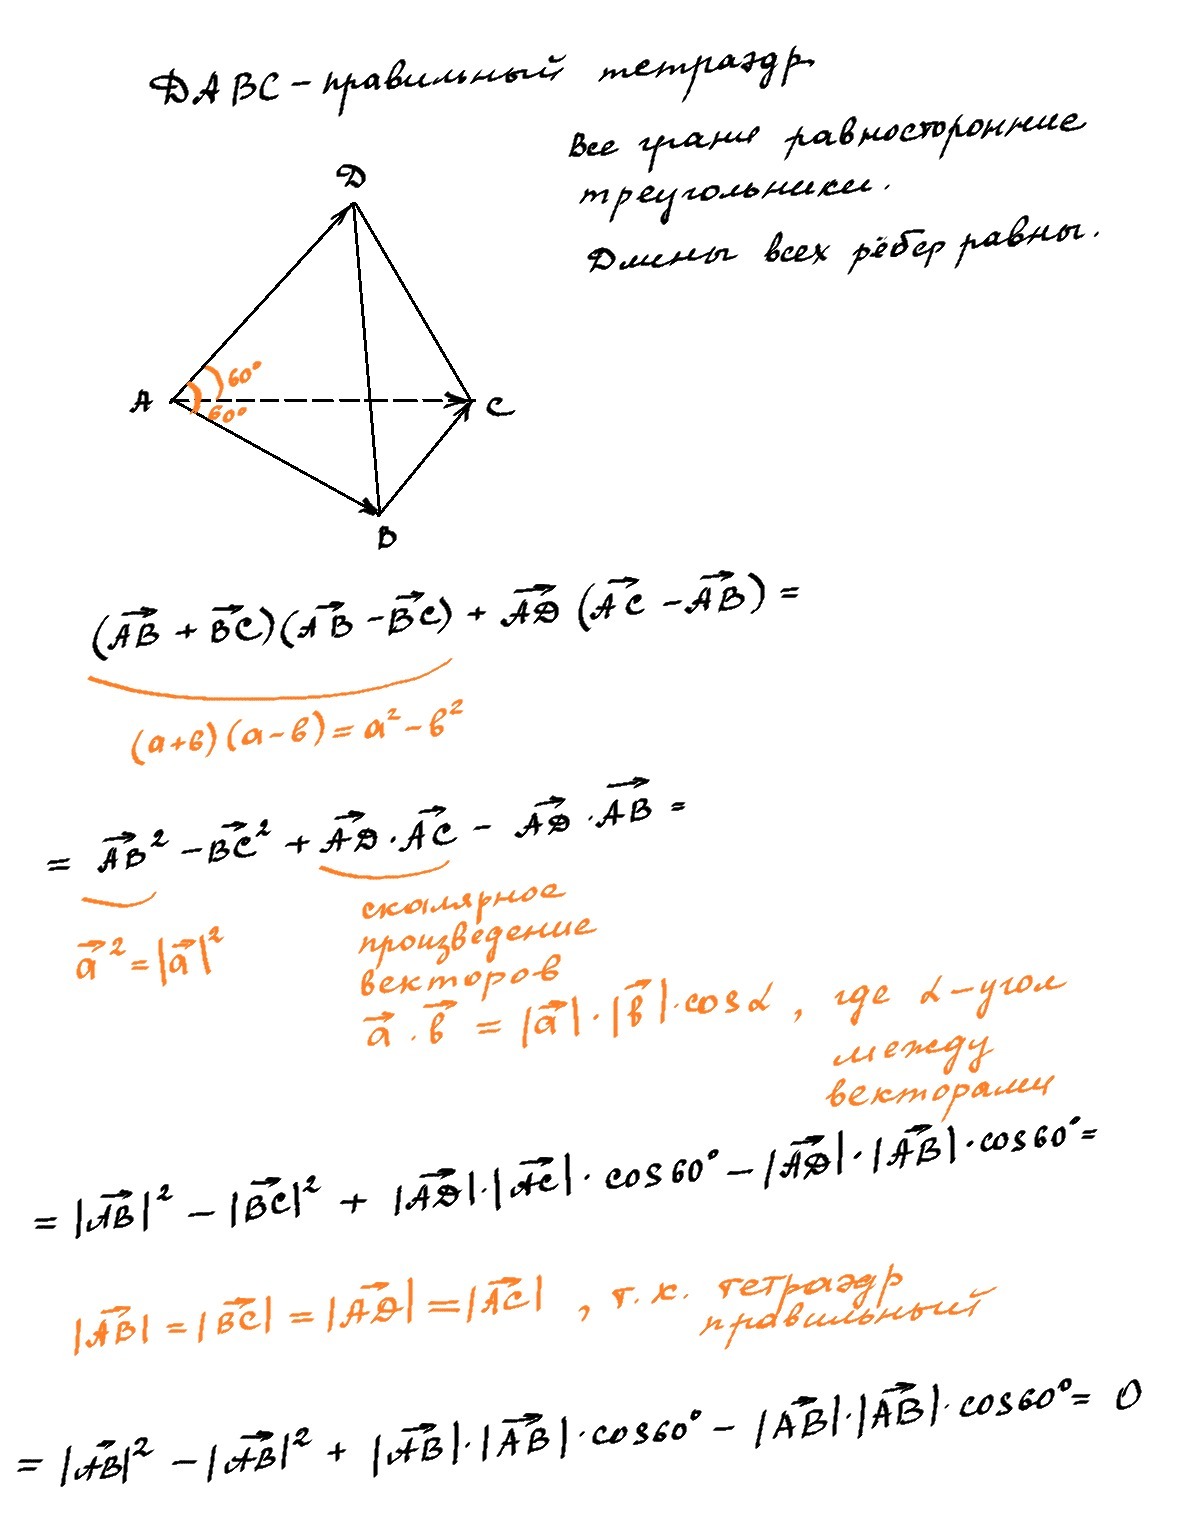 DABC – правильный тетраэдр.
Все грани равносторонние
треугольники.
Длины всех рёбер равны.
D
60°
A
60°
C
B
(AB⃗ + BC⃗)(AB⃗ - BC⃗) + AD⃗ (AC⃗ - AB⃗) =
(a+b)(a-b) = a² - b²
= AB⃗² - BC⃗² + AD⃗ · AC⃗ - AD⃗ · AB⃗ =
a⃗² = |a⃗|²
скалярное
произведение
векторов
a⃗ · b⃗ = |a⃗| · |b⃗| · cos α, где α – угол
между
векторами
= |AB⃗|² - |BC⃗|² + |AD⃗| · |AC⃗| · cos 60° - |AD⃗| · |AB⃗| · cos 60° =
|AB⃗| = |BC⃗| = |AD⃗| = |AC⃗| , т.к. тетраэдр
правильный
= |AB⃗|² - |AB⃗|² + |AB⃗| · |AB⃗| · cos 60° - |AB⃗| · |AB⃗| · cos 60° = 0